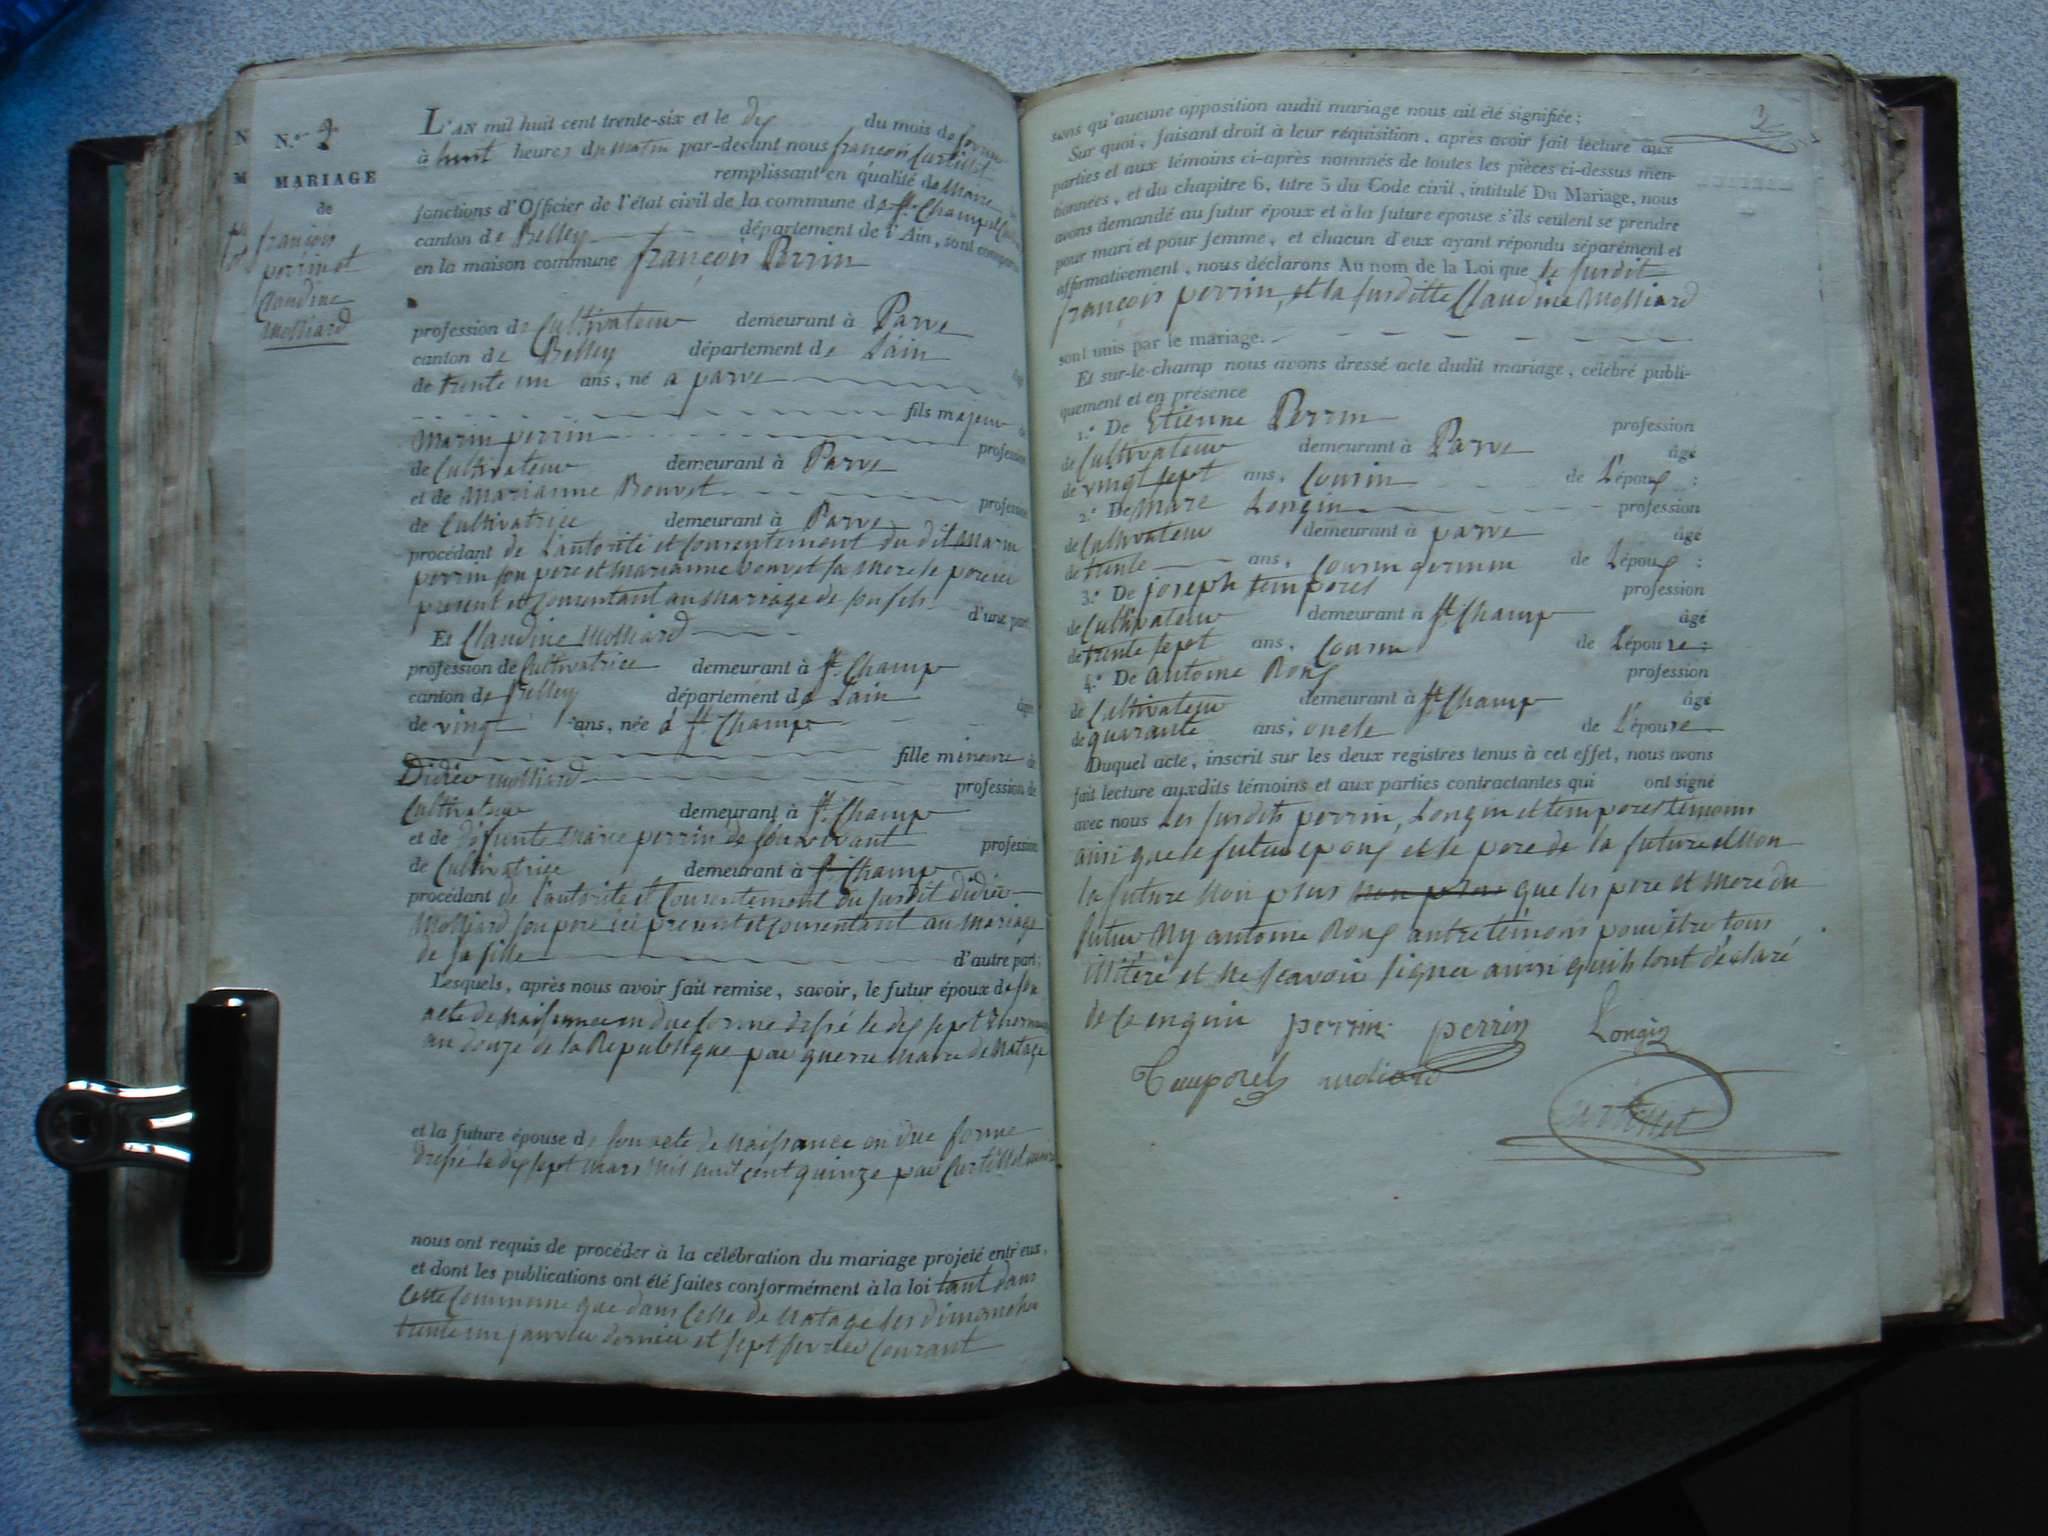 N.° 2
MARIAGE
de
françois
perrin et
Claudine
Molliard
L'AN mil huit cent trente-six et le dix du mois de février
à huit heures du matin par-devant nous françois Curtillet
remplissant en qualité de Maire
fonctions d'Officier de l'état civil de la commune de St. Champ
canton de Belley département de l'Ain, sont comparus
en la maison commune françois Perrin
profession de Cultivateur demeurant à Parve
canton de Belley département de Láin
âgé
de trente un ans, né a parve
fils majeur de
Marin perrin profession
de Cultivateur demeurant à Parve
et de Marianne Bouvet profession
de Cultivatrice demeurant à Parve
procédant de L'autorité et Consentement du dit Marin
perrin son pere et Marianne bouvet sa Mere le pere ici
present et Consentant au Mariage de son fils d'une part;
Et Claudine Molliard
profession de Cultivatrice demeurant à St. Champ
canton de Belley département de Láin
âgée
de vingt ans, née à St. Champ
fille mineure de
Didier Molliard profession de
Cultivateur demeurant à St. Champ
et de défunte Marie perrin de son vivant profession
de Cultivatrice demeurant à St. Champ
procédant de L'autorité et Consentement du susdit didier
Molliard son pere ici present et Consentant au Mariage
de sa fille d'autre part;
Lesquels, après nous avoir fait remise, savoir, le futur époux de son
acte de Naissance en due forme dressé le dix sept thermidor
an douze de la Republique par guerre Maire de Natage
et la future épouse de son acte de Naissance en due forme
dressé le dix sept Mars Mil huit cent quinze par Curtillet Maire
nous ont requis de procéder à la célébration du mariage projeté entr'eux,
et dont les publications ont été faites conformément à la loi tant dans
Cette Commune que dans Celle de Natage les dimanches
trente un janvier dernier et sept fevrier Courant
sans qu'aucune opposition audit mariage nous ait été signifiée;
Sur quoi, faisant droit à leur réquisition, après avoir fait lecture aux
parties et aux témoins ci-après nommés de toutes les pièces ci-dessus men-
tionnées, et du chapitre 6, titre 5 du Code civil, intitulé Du Mariage, nous
avons demandé au futur époux et à la future epouse s'ils veulent se prendre
pour mari et pour femme, et chacun d'eux ayant répondu séparément et
affirmativement, nous déclarons Au nom de la Loi que le susdit
françois perrin, et la susditte Claudine Molliard
sont unis par le mariage.
Et sur-le-champ nous avons dressé acte dudit mariage, célébré publi-
quement et en présence
1.° De Etienne Perrin profession
de Cultivateur demeurant à Parve âgé
de vingt sept ans, Cousin de L'époux :
2.° De Marc Longin profession
de Cultivateur demeurant à parve âgé
de trente ans, Cousin germain de L'époux :
3.° De joseph temporel profession
de Cultivateur demeurant à St Champ âgé
de trente sept ans, Cousin de L'épouse :
4.° De antoine Roux profession
de Cultivateur demeurant à St Champ âgé
de quarante ans, oncle de L'épouse
Duquel acte, inscrit sur les deux registres tenus à cet effet, nous avons
fait lecture auxdits témoins et aux parties contractantes qui ont signé
avec nous Les susdits perrin, Longin et temporel temoins
ainsi que le futur epoux et le pere de la future et Non
la future Non plus non plus que les pere et Mere du
futur Ny antoine Roux autre témoin pour être tous
illitéré et Ne scavoir signer ainsi quils lont déclaré
de Ce enquis perrin perrin Longin
Temporel moliard
Curtillet